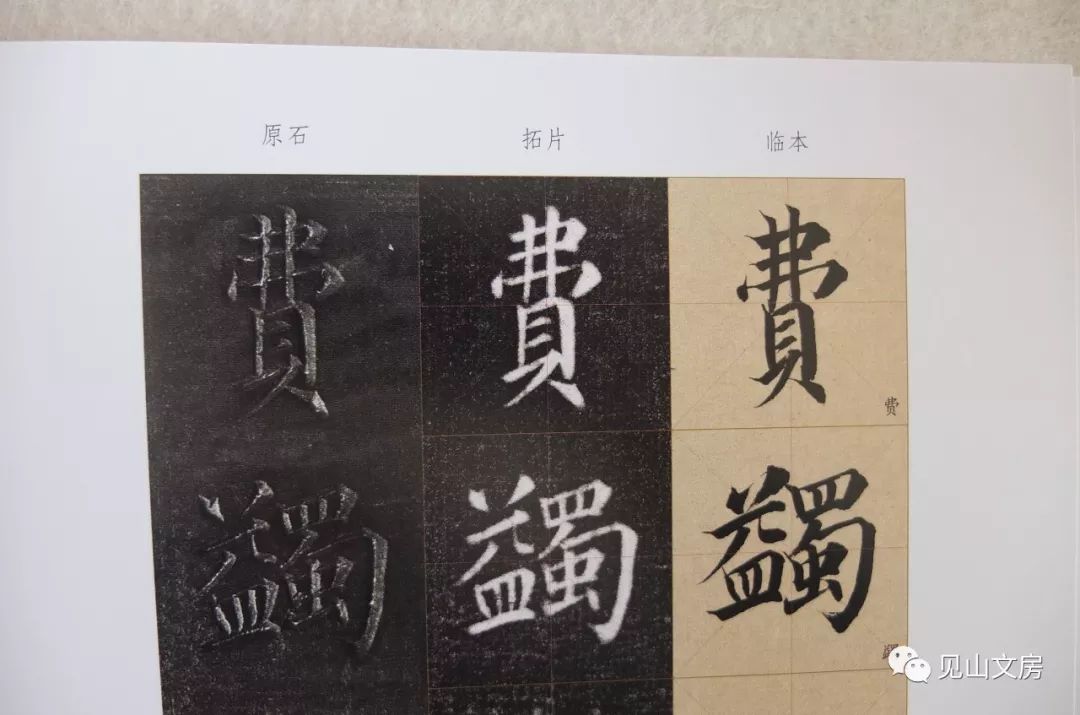 原石 拓片 临本
費 費 費
费
蠲 蠲 蠲
见山文房